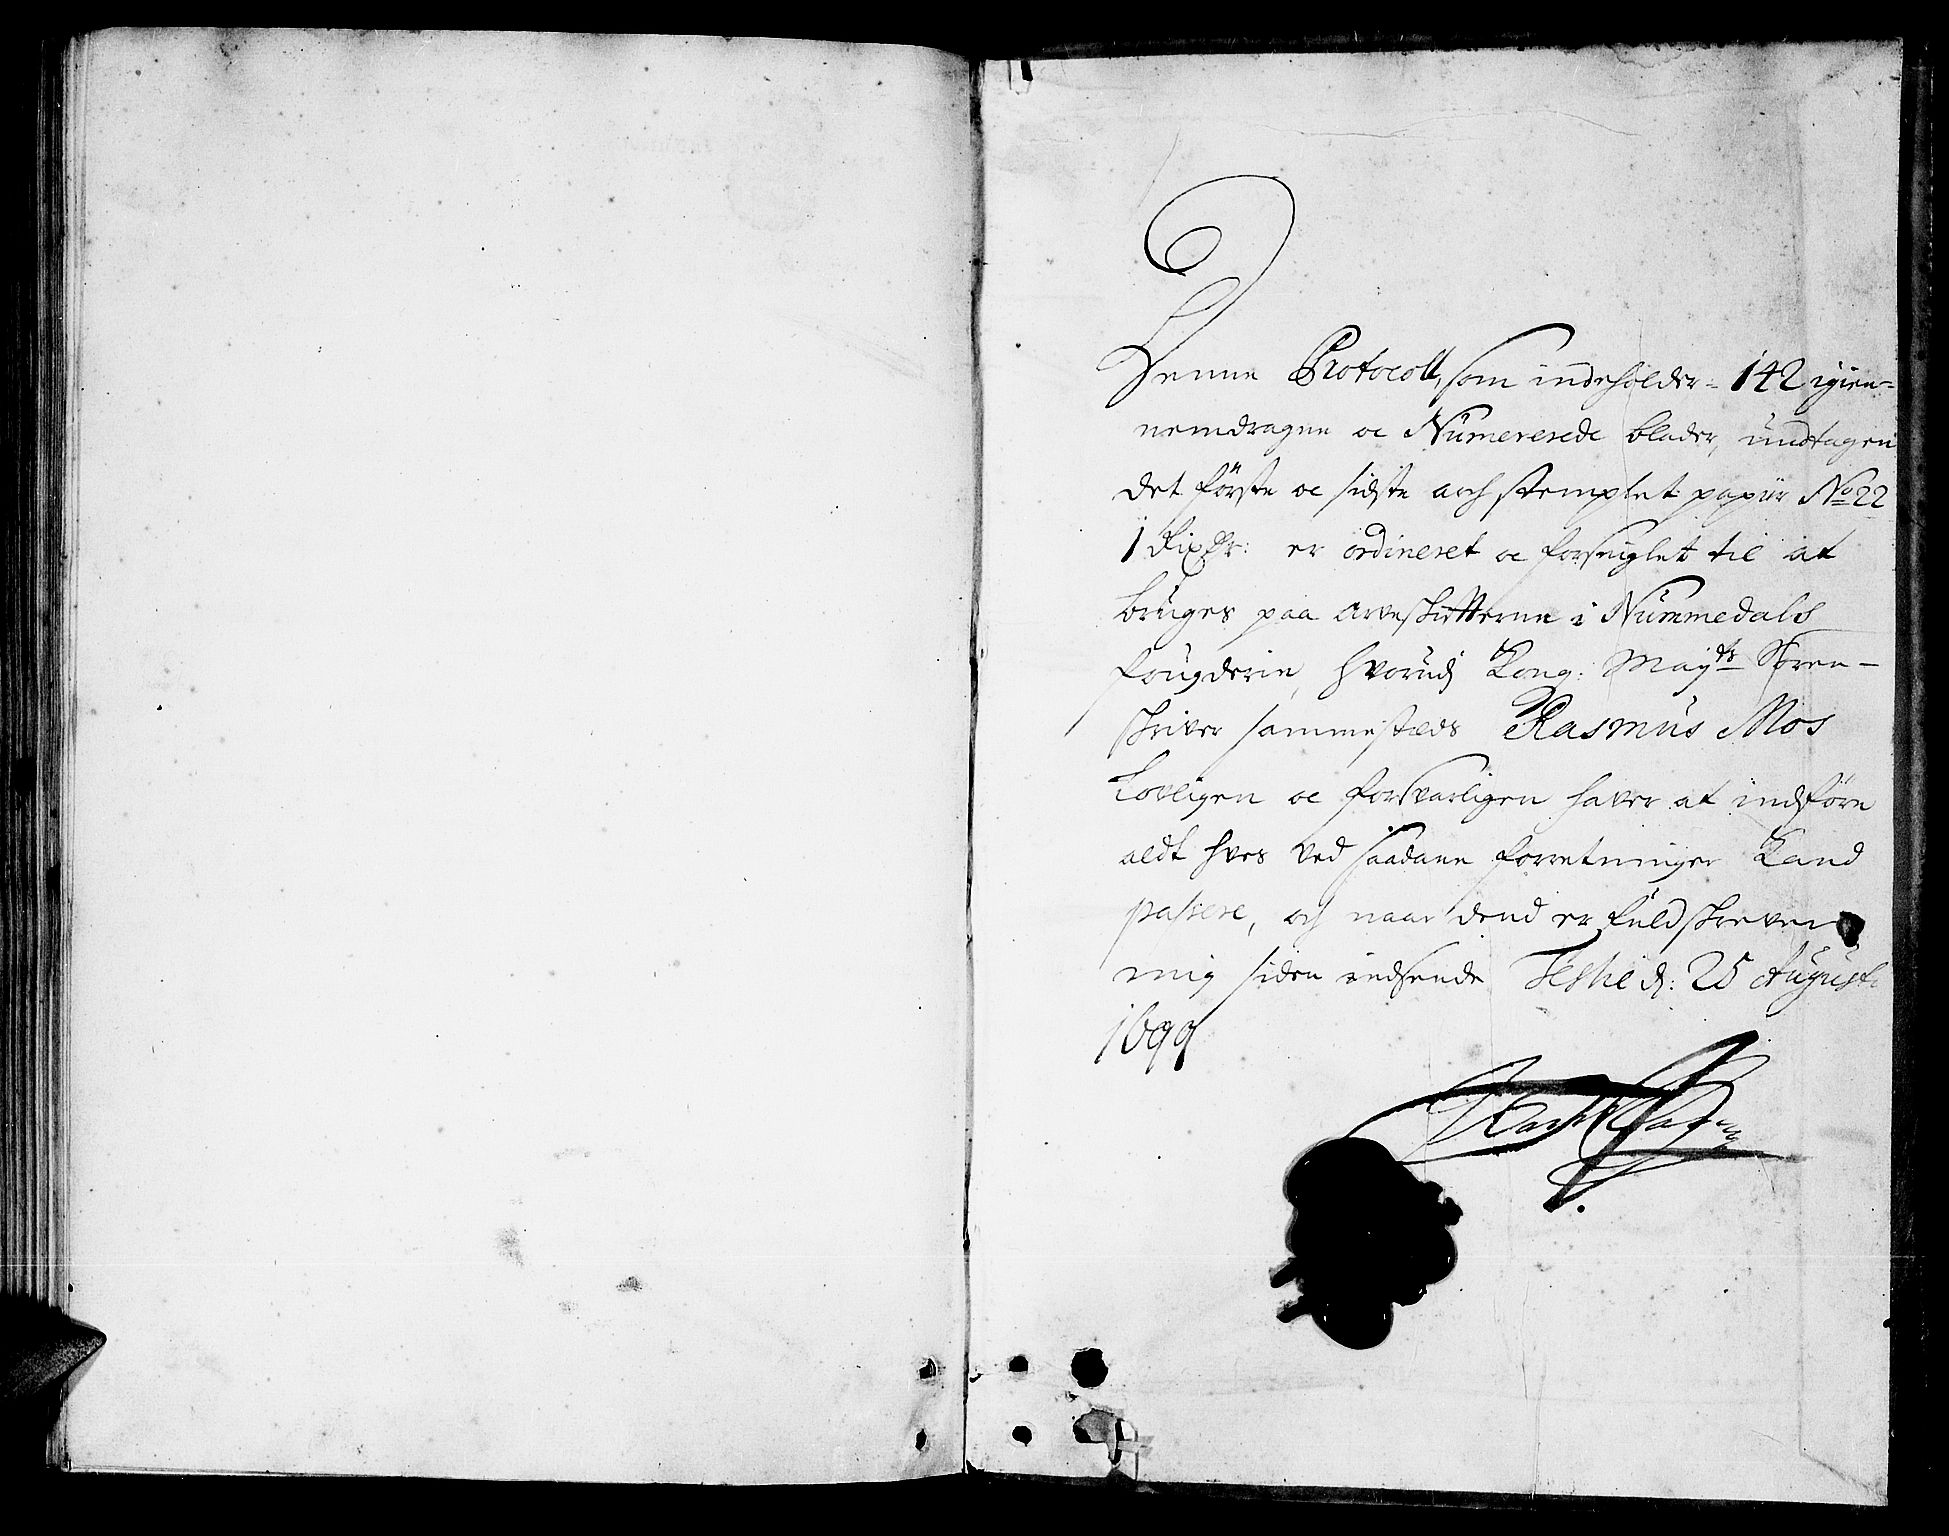 Denne Protocoll, som indeholder = 142 igien=
nemdragne oc Numererede blader, undtagen
det förste oc sidste arch stemplet papiir No 22
1 Rixdr: er ordineret oc forseiglet til at
bruges paa arveskifterne i Nummedals
fougderie, hvorudj Kong: Mayts Soren-
skriver sammestæds Rasmus Mos
Lovligen oc forsvarligen haver at indföre
aldt hves ved saadane forretninger Kand
passere, och naar dend er fuldskreven
mig siden indsende d: 25 Augusti
1699